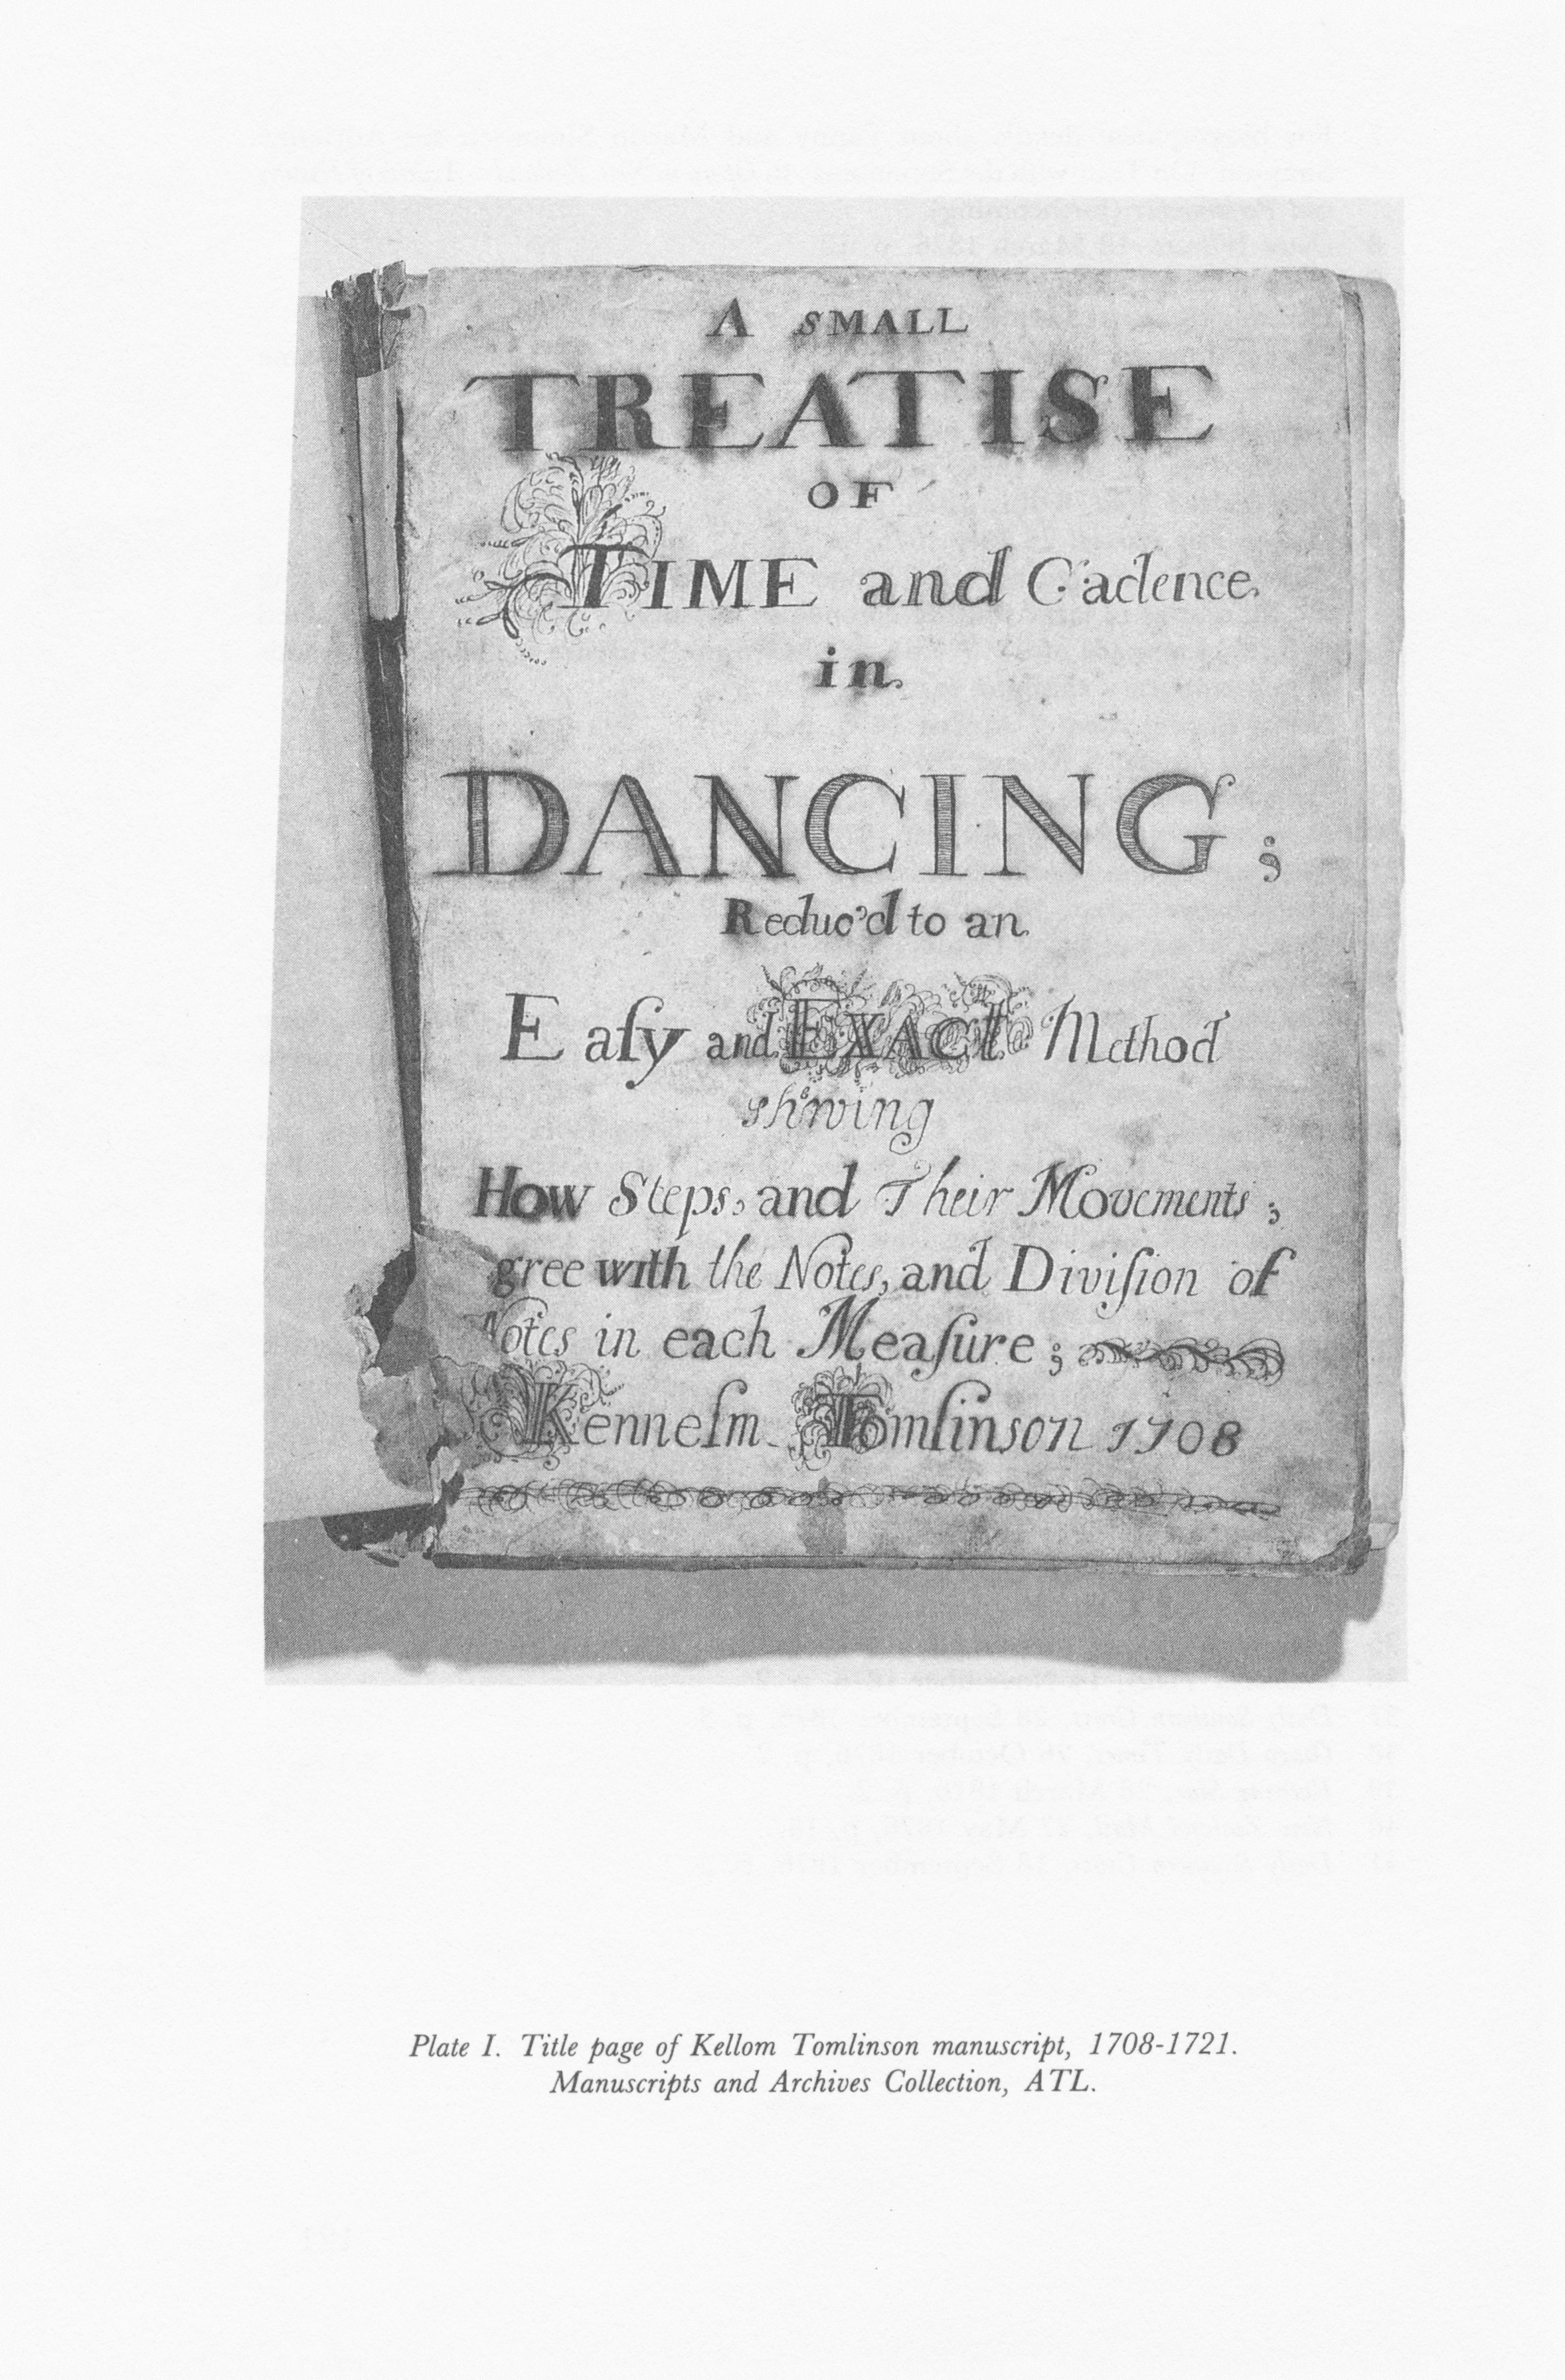 A SMALL
TREATISE
OF
TIME and Cadence
in
DANCING;
Reduc'd to an
Eaſy and EXACt Method
shwing
How Steps, and Their Movements;
gree with the Notes, and Diviſion of
Notes in each Meaſure;
Kennelm Tomlinson 1708
Plate I. Title page of Kellom Tomlinson manuscript, 1708-1721.
Manuscripts and Archives Collection, ATL.